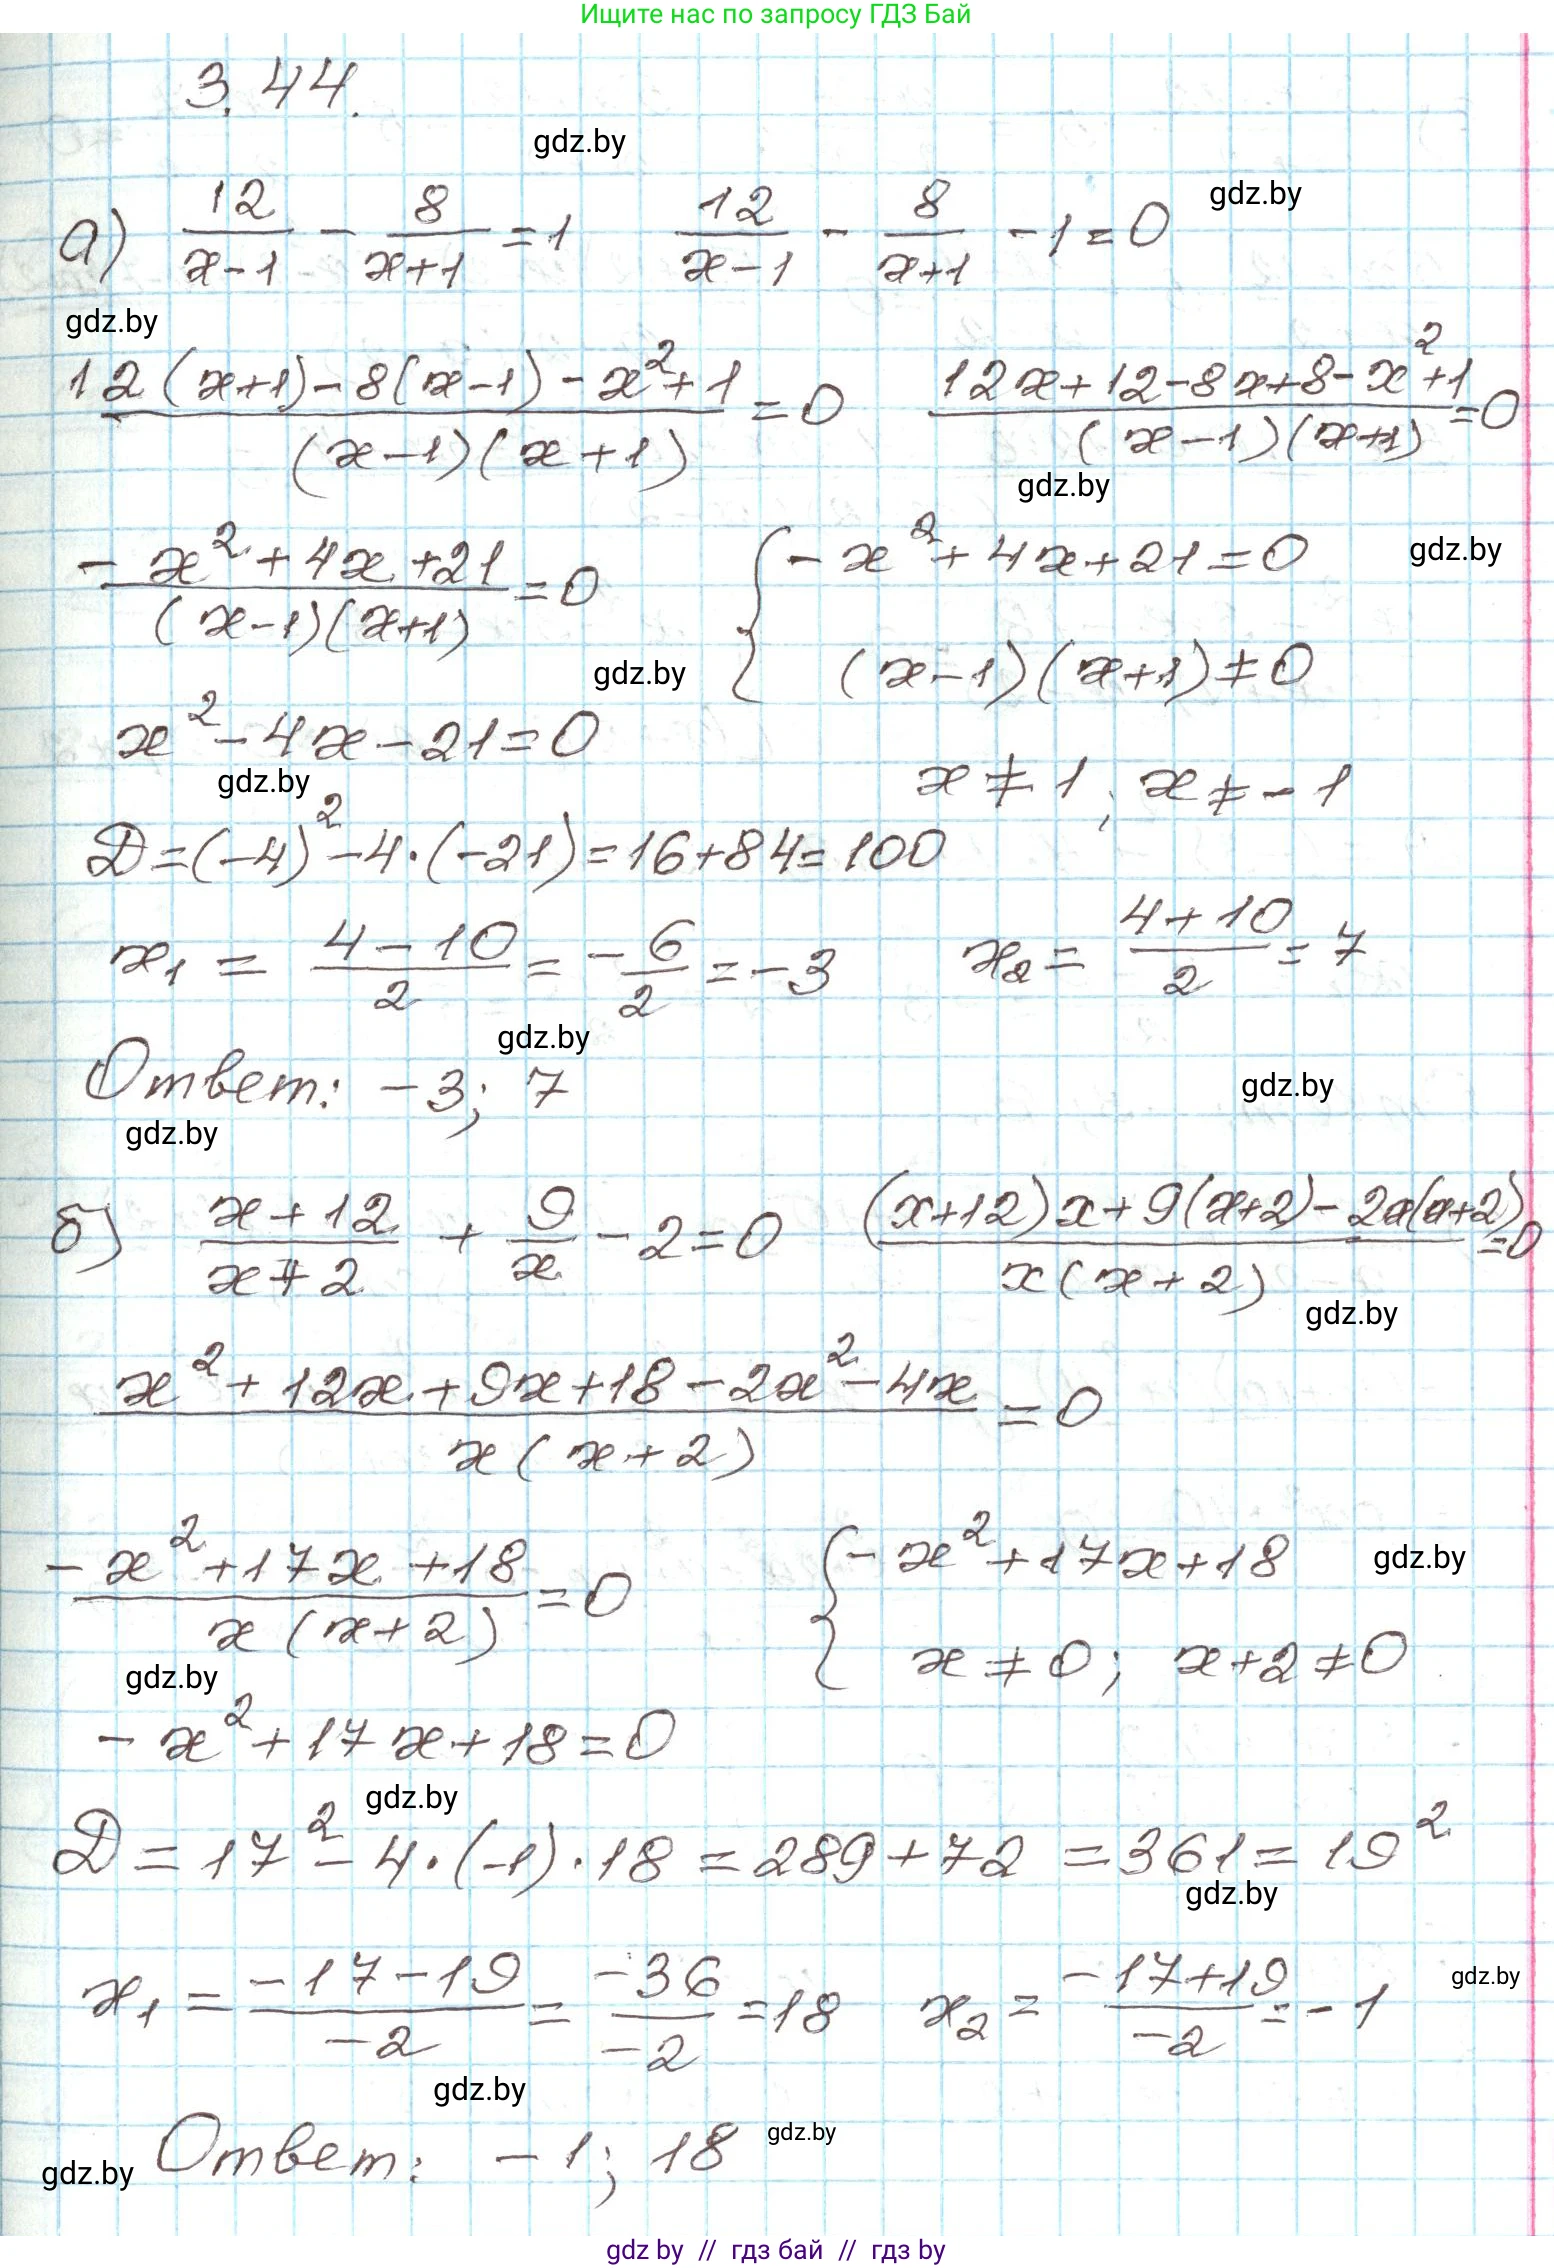 Ищите нас по запросу ГДЗ Бай
3.44.
gdz.by
gdz.by
а) 12/(x-1) - 8/(x+1) = 1   12/(x-1) - 8/(x+1) - 1 = 0
gdz.by
(12(x+1) - 8(x-1) - x² + 1)/((x-1)(x+1)) = 0   (12x + 12 - 8x + 8 - x² + 1)/((x-1)(x+1)) = 0
gdz.by
(-x² + 4x + 21)/((x-1)(x+1)) = 0   { -x² + 4x + 21 = 0
gdz.by
(x-1)(x+1) ≠ 0
gdz.by
x² - 4x - 21 = 0
gdz.by
x ≠ 1; x ≠ -1
D = (-4)² - 4·(-21) = 16 + 84 = 100
x₁ = (4-10)/2 = -6/2 = -3   x₂ = (4+10)/2 = 7
gdz.by
Ответ: -3; 7
gdz.by
gdz.by
б) (x+12)/(x+2) + 9/x - 2 = 0   ((x+12)x + 9(x+2) - 2x(x+2))/(x(x+2)) = 0
gdz.by
(x² + 12x + 9x + 18 - 2x² - 4x)/(x(x+2)) = 0
(-x² + 17x + 18)/(x(x+2)) = 0   { -x² + 17x + 18
gdz.by
x ≠ 0; x+2 ≠ 0
gdz.by
-x² + 17x + 18 = 0
gdz.by
D = 17² - 4·(-1)·18 = 289 + 72 = 361 = 19²
gdz.by
x₁ = (-17-19)/(-2) = (-36)/(-2) = 18   x₂ = (-17+19)/(-2) = -1
gdz.by
gdz.by
Ответ: -1; 18
gdz.by
gdz.by
gdz by // гдз бай // гдз by